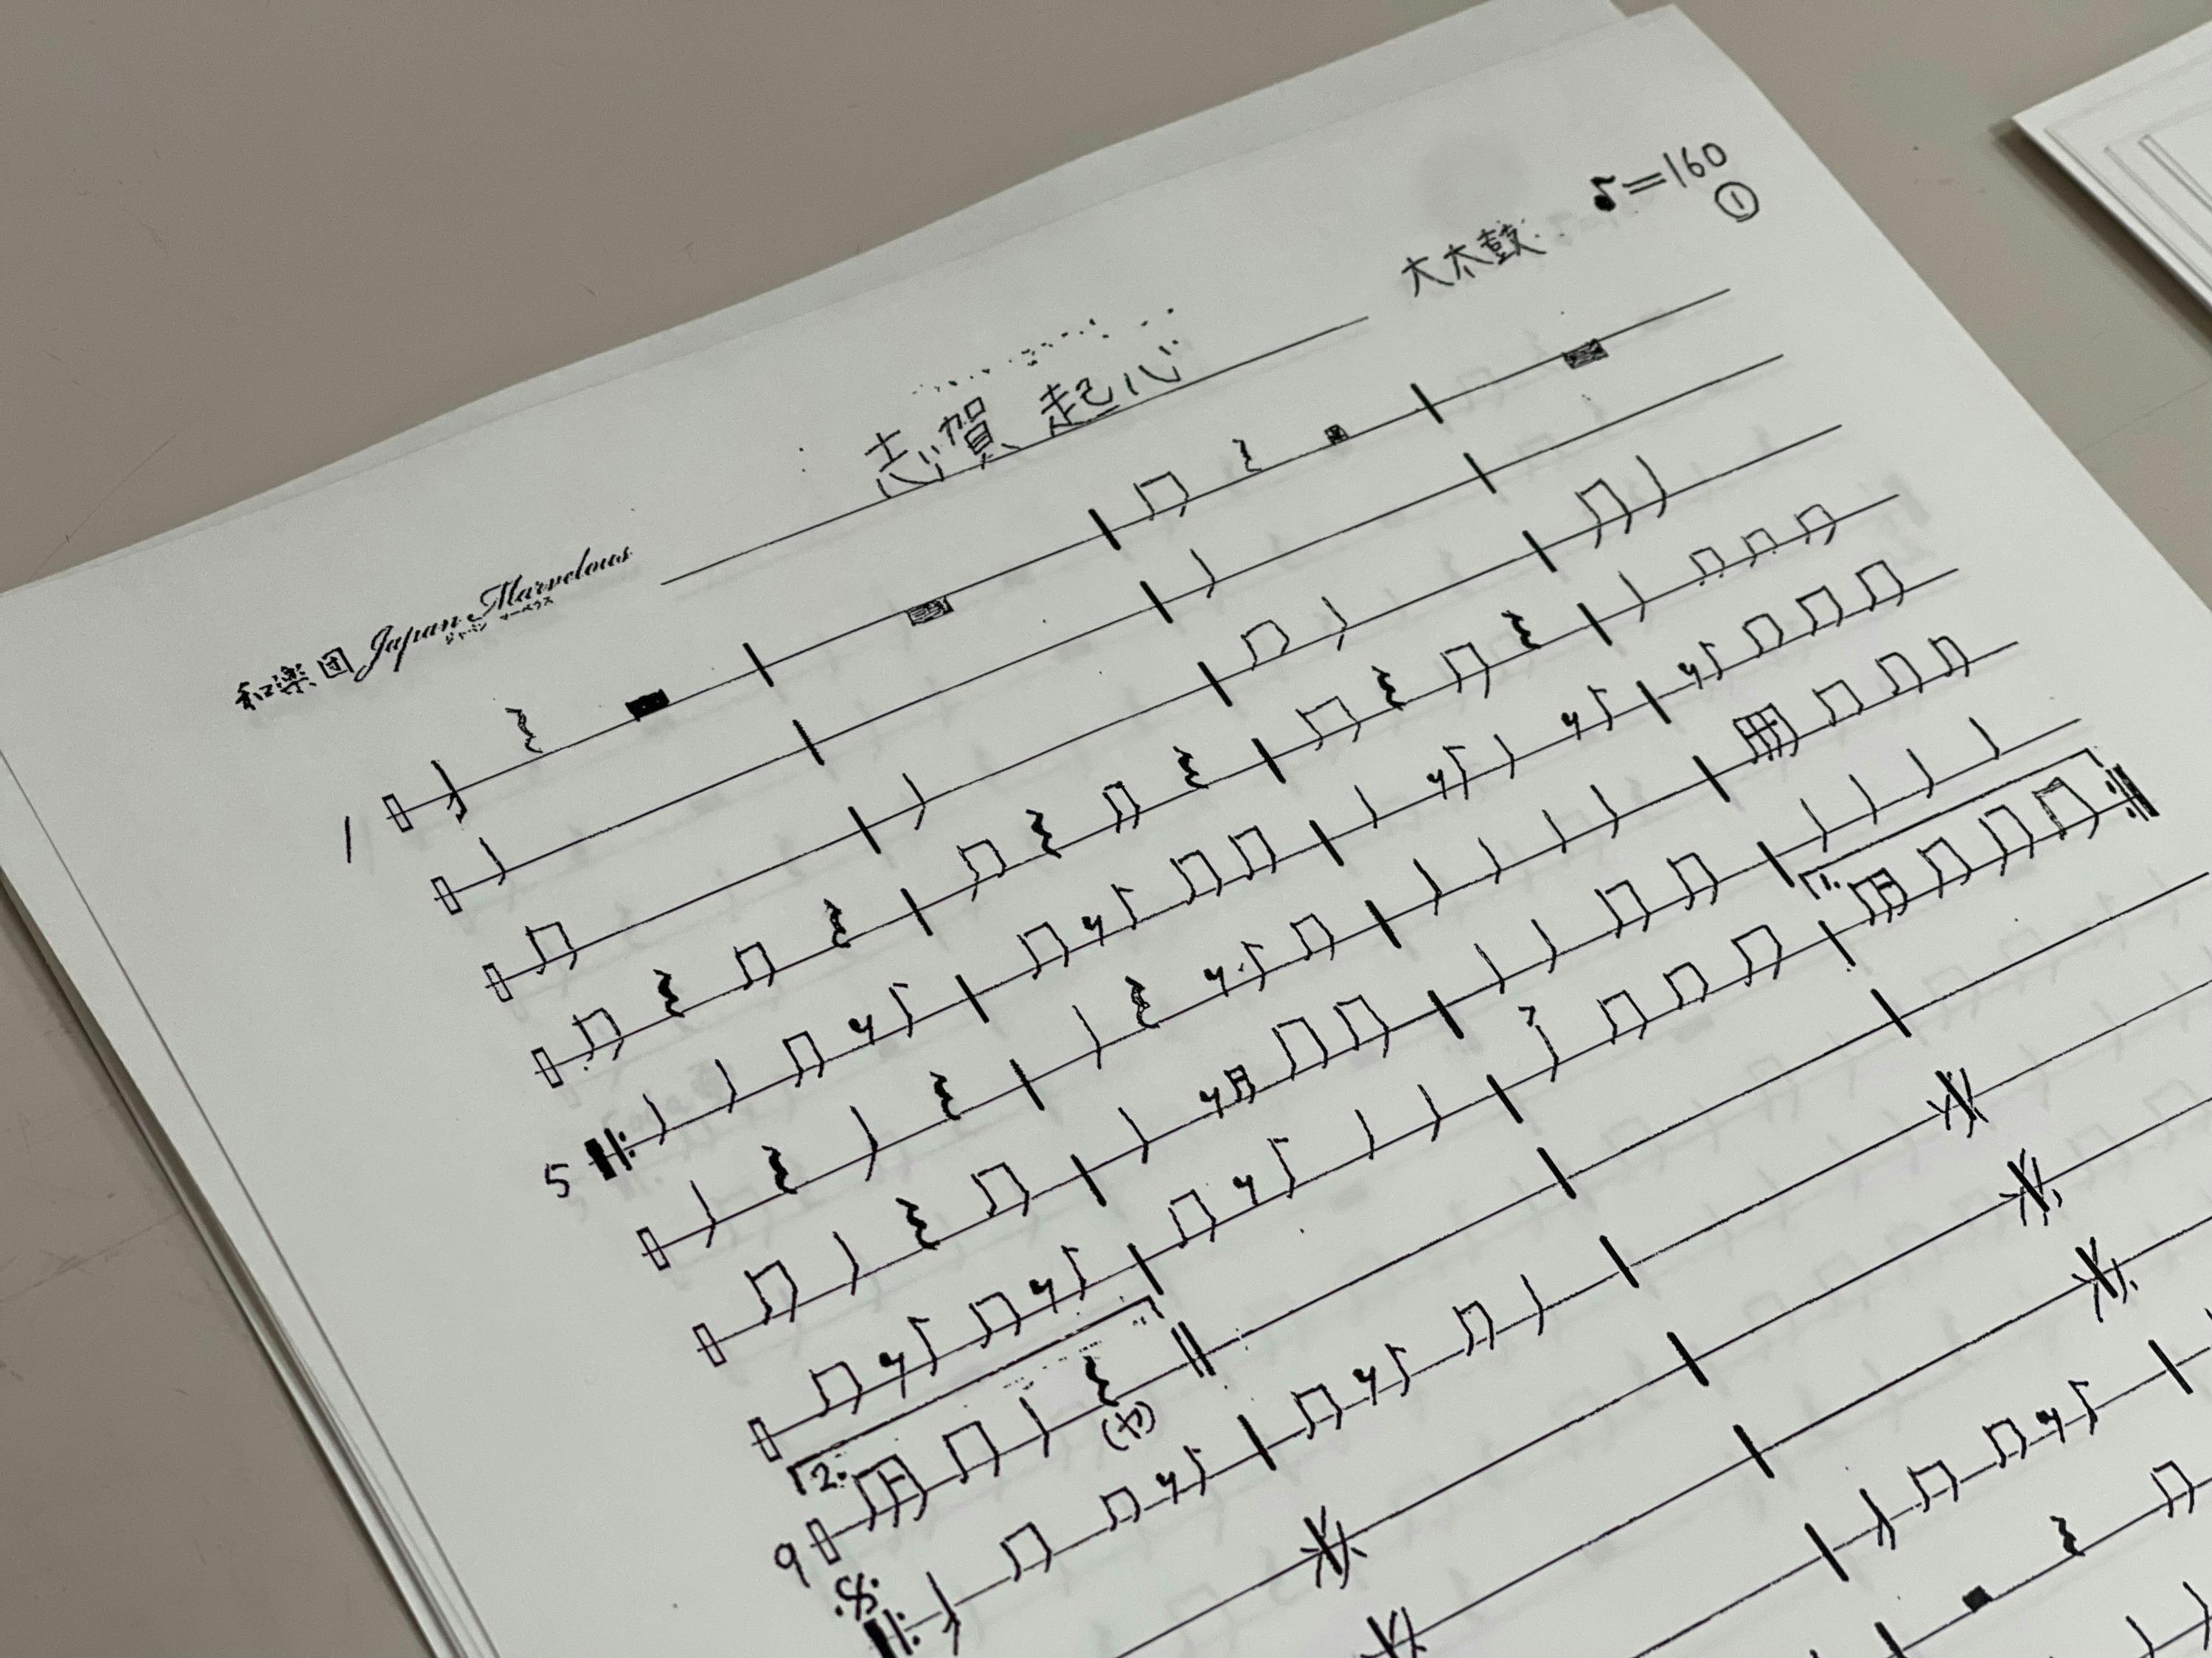 ♪=160
①
大太鼓
志賀 起心
和楽団 Japan Marvelous
ジャパン マーベラス
1
5
1.
2.
(ヤ)
9